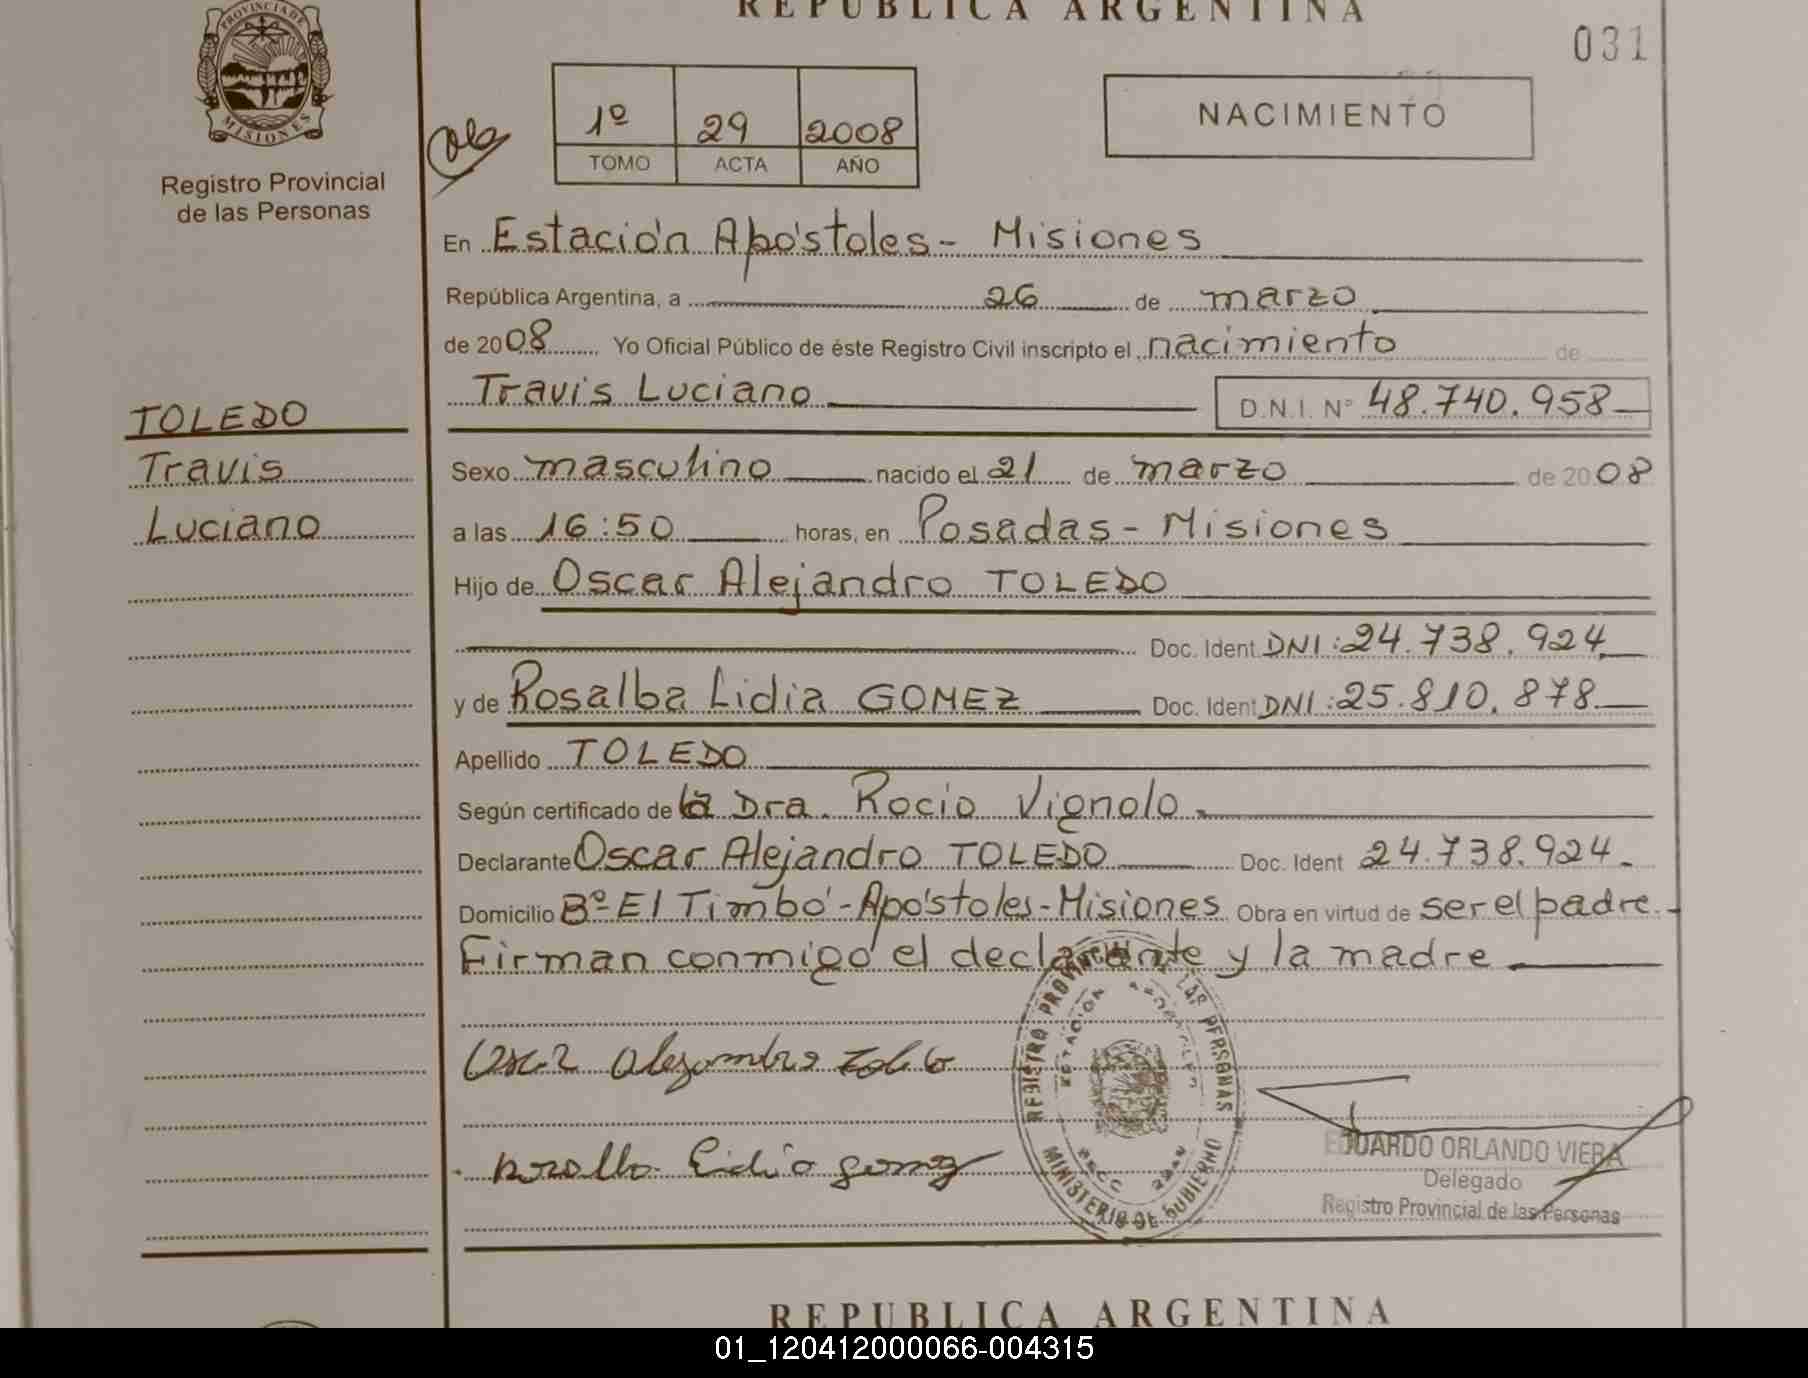 REPUBLICA ARGENTINA
031
PROVINCIA DE
MISIONES
Registro Provincial
de las Personas
1º 29 2008
TOMO ACTA AÑO
NACIMIENTO
En Estación Apóstoles - Misiones
República Argentina, a 26 de marzo
de 2008 Yo Oficial Público de éste Registro Civil inscripto el nacimiento de
Travis Luciano D.N.I. Nº 48.740.958
TOLEDO
Travis
Luciano
Sexo masculino nacido el 21 de marzo de 2008
a las 16:50 horas, en Posadas - Misiones
Hijo de Oscar Alejandro TOLEDO
Doc. Ident DNI: 24.738.924
y de Rosalba Lidia GOMEZ Doc. Ident DNI: 25.810.878
Apellido TOLEDO
Según certificado de la Dra. Rocio Vignolo.
Declarante Oscar Alejandro TOLEDO Doc. Ident 24.738.924.
Domicilio Bº El Timbó - Apóstoles - Misiones Obra en virtud de ser el padre.
Firman conmigo el declarante y la madre
REGISTRO PROVINCIAL DE LAS PERSONAS
ESTACION APOSTOLES
MINISTERIO DE GOBIERNO
Oscar Alejandro Toledo
Rosalba Lidia Gomez
EDUARDO ORLANDO VIERA
Delegado
Registro Provincial de las Personas
REPUBLICA ARGENTINA
01_120412000066-004315